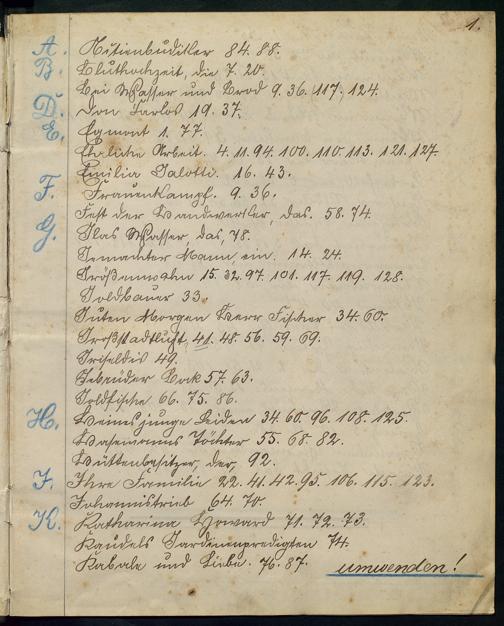 1.
A. Aktienbudiker 84. 88.
B. Bluthochzeit, die 7. 20.
Bei Wasser und Brod 9. 36. 117. 124.
D. Don Carlos 19. 37.
E. Egmont 1. 77.
Ehrliche Arbeit. 4. 11. 94. 100. 110. 113. 121. 127.
Emilia Galotti. 16. 43.
F. Frauenkampf. 9. 36.
Fest der Handwerker, das. 58. 74.
G. Glas Wasser das, 78.
Gemachter Mann, ein. 14. 24.
Größenwahn 15. 32. 97. 101. 117. 119. 128.
Goldbauer 33.
Guten Morgen Herr Fischer 34. 60.
Großstadtluft, 41. 48. 56. 59. 69.
Griseldis 49.
Gebrüder Bock 57. 63.
Goldfische 66. 75. 86.
H. Heinis junge Leiden 34. 60. 96. 108. 125.
Hasemanns Töchter 55. 68. 82.
Hüttenbesitzer, der, 92.
I. Ihre Familie 22. 41. 42. 95. 106. 115. 123.
Johannistrieb 64. 70.
K. Katharina Howard 71. 72. 73.
Kaudels Gardinenpredigten 74.
Kabale und Liebe. 76. 87.
umwenden!